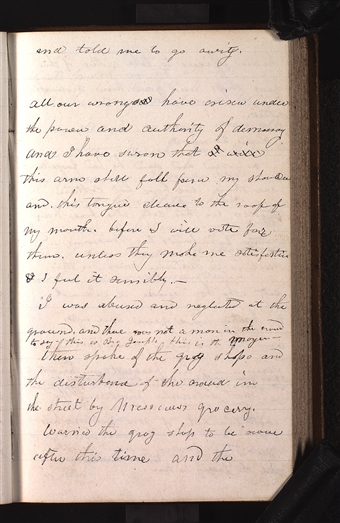 and told me to go away.
all our wrongs have arisen under
the power and authority of democracy
and I have sworn that
this arm shall fall from my shoulder
and this tongue cleave to the roof of
my mouth before I will vote for
them. unless they make me satisfaction
& I feel it sensibly.—
I was abused and neglected at the
ground. and there was not a man in the crowd
to say this is Bro Joseph, this is the Mayor
then spoke of the grog shops and
the disturbance of the crowd in
the street by grocery.
Warned the grog shop to be
after this time and the